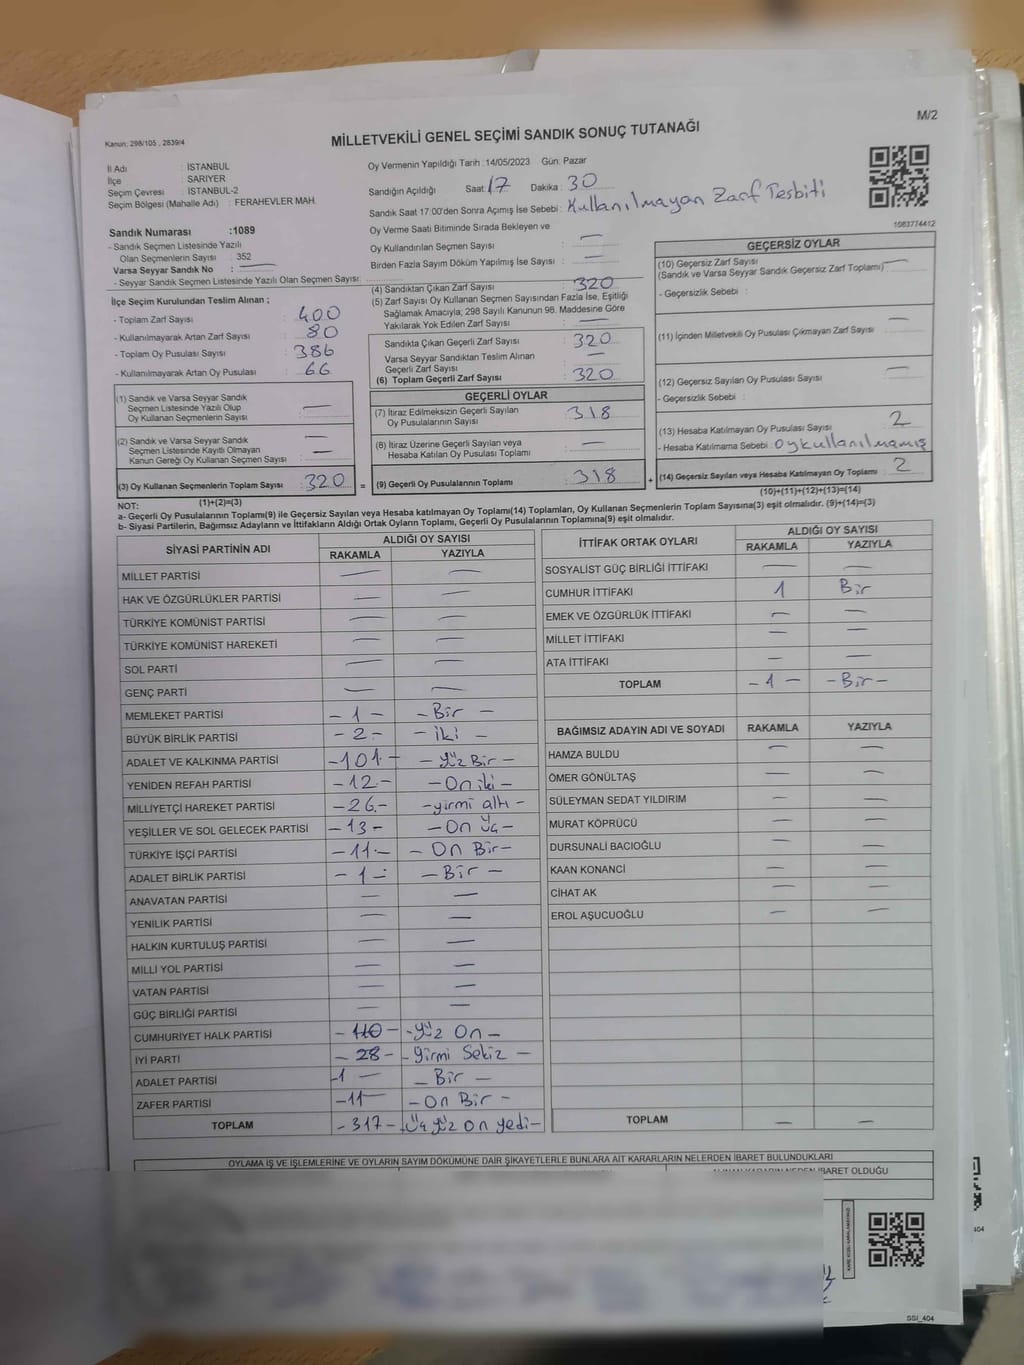 M/2
Kanun: 298/105 , 2839/4
MİLLETVEKİLİ GENEL SEÇİMİ SANDIK SONUÇ TUTANAĞI
İl Adı : İSTANBUL
İlçe : SARIYER
Seçim Çevresi : İSTANBUL-2
Seçim Bölgesi (Mahalle Adı) : FERAHEVLER MAH.
Sandık Numarası :1089
- Sandık Seçmen Listesinde Yazılı
Olan Seçmenlerin Sayısı : 352
Varsa Seyyar Sandık No : —
- Seyyar Sandık Seçmen Listesinde Yazılı Olan Seçmen Sayısı:
Oy Vermenin Yapıldığı Tarih :14/05/2023 Gün: Pazar
Sandığın Açıldığı Saat: 17 Dakika : 30
Sandık Saat 17:00'den Sonra Açımış İse Sebebi: Kullanılmayan Zarf Tesbiti
Oy Verme Saati Bitiminde Sırada Bekleyen ve
Oy Kullandırılan Seçmen Sayısı : —
Birden Fazla Sayım Döküm Yapılmış İse Sayısı : —
1083774412
İlçe Seçim Kurulundan Teslim Alınan ;
- Toplam Zarf Sayısı : 400
- Kullanılmayarak Artan Zarf Sayısı : 80
- Toplam Oy Pusulası Sayısı : 386
- Kullanılmayarak Artan Oy Pusulası : 66
(1) Sandık ve Varsa Seyyar Sandık
Seçmen Listesinde Yazılı Olup
Oy Kullanan Seçmenlerin Sayısı : —
(2) Sandık ve Varsa Seyyar Sandık
Seçmen Listesinde Kayıtlı Olmayan
Kanun Gereği Oy Kullanan Seçmen Sayısı : —
(3) Oy Kullanan Seçmenlerin Toplam Sayısı : 320
(1)+(2)=(3)
(4) Sandıktan Çıkan Zarf Sayısı : 320
(5) Zarf Sayısı Oy Kullanan Seçmen Sayısından Fazla İse, Eşitliği
Sağlamak Amacıyla; 298 Sayılı Kanunun 98. Maddesine Göre
Yakılarak Yok Edilen Zarf Sayısı : —
Sandıkta Çıkan Geçerli Zarf Sayısı : 320
Varsa Seyyar Sandıktan Teslim Alınan
Geçerli Zarf Sayısı : —
(6) Toplam Geçerli Zarf Sayısı : 320
GEÇERLİ OYLAR
(7) İtiraz Edilmeksizin Geçerli Sayılan
Oy Pusulalarının Sayısı : 318
(8) İtiraz Üzerine Geçerli Sayılan veya
Hesaba Katılan Oy Pusulası Toplamı : —
= (9) Geçerli Oy Pusulalarının Toplamı : 318
GEÇERSİZ OYLAR
(10) Geçersiz Zarf Sayısı
(Sandık ve Varsa Seyyar Sandık Geçersiz Zarf Toplamı) : —
- Geçersizlik Sebebi :
(11) İçinden Milletvekili Oy Pusulası Çıkmayan Zarf Sayısı : —
(12) Geçersiz Sayılan Oy Pusulası Sayısı : —
- Geçersizlik Sebebi :
(13) Hesaba Katılmayan Oy Pusulası Sayısı : 2
- Hesaba Katılmama Sebebi : Oy kullanılmamış
+ (14) Geçersiz Sayılan veya Hesaba Katılmayan Oy Toplamı : 2
(10)+(11)+(12)+(13)=(14)
NOT:
a- Geçerli Oy Pusulalarının Toplamı(9) ile Geçersiz Sayılan veya Hesaba katılmayan Oy Toplamı(14) Toplamları, Oy Kullanan Seçmenlerin Toplam Sayısına(3) eşit olmalıdır. (9)+(14)=(3)
b- Siyasi Partilerin, Bağımsız Adayların ve İttifakların Aldığı Ortak Oyların Toplamı, Geçerli Oy Pusulalarının Toplamına(9) eşit olmalıdır.
SİYASİ PARTİNİN ADI ALDIĞI OY SAYISI
RAKAMLA YAZIYLA
MİLLET PARTİSİ — —
HAK VE ÖZGÜRLÜKLER PARTİSİ — —
TÜRKİYE KOMÜNİST PARTİSİ — —
TÜRKİYE KOMÜNİST HAREKETİ — —
SOL PARTİ — —
GENÇ PARTİ — —
MEMLEKET PARTİSİ - 1 - - Bir -
BÜYÜK BİRLİK PARTİSİ - 2 - - iki -
ADALET VE KALKINMA PARTİSİ - 101 - - yüz Bir -
YENİDEN REFAH PARTİSİ - 12 - - On iki -
MİLLİYETÇİ HAREKET PARTİSİ - 26 - - yirmi altı -
YEŞİLLER VE SOL GELECEK PARTİSİ - 13 - - On üç -
TÜRKİYE İŞÇİ PARTİSİ - 11 - - On Bir -
ADALET BİRLİK PARTİSİ - 1 - - Bir -
ANAVATAN PARTİSİ — —
YENİLİK PARTİSİ — —
HALKIN KURTULUŞ PARTİSİ — —
MİLLİ YOL PARTİSİ — —
VATAN PARTİSİ — —
GÜÇ BİRLİĞİ PARTİSİ — —
CUMHURİYET HALK PARTİSİ - 110 - - yüz On -
İYİ PARTİ - 28 - - yirmi Sekiz -
ADALET PARTİSİ - 1 - - Bir -
ZAFER PARTİSİ - 11 - - On Bir -
TOPLAM - 317 - - Üç yüz on yedi -
İTTİFAK ORTAK OYLARI ALDIĞI OY SAYISI
RAKAMLA YAZIYLA
SOSYALİST GÜÇ BİRLİĞİ İTTİFAKI — —
CUMHUR İTTİFAKI 1 Bir
EMEK VE ÖZGÜRLÜK İTTİFAKI — —
MİLLET İTTİFAKI — —
ATA İTTİFAKI — —
TOPLAM - 1 - - Bir -
BAĞIMSIZ ADAYIN ADI VE SOYADI RAKAMLA YAZIYLA
HAMZA BULDU — —
ÖMER GÖNÜLTAŞ — —
SÜLEYMAN SEDAT YILDIRIM — —
MURAT KÖPRÜCÜ — —
DURSUNALİ BACIOĞLU — —
KAAN KONANCİ — —
CİHAT AK — —
EROL AŞUCUOĞLU — —
TOPLAM — —
OYLAMA İŞ VE İŞLEMLERİNE VE OYLARIN SAYIM DÖKÜMÜNE DAİR ŞİKAYETLERLE BUNLARA AİT KARARLARIN NELERDEN İBARET BULUNDUKLARI
İBARET OLDUĞU
SSİ_404